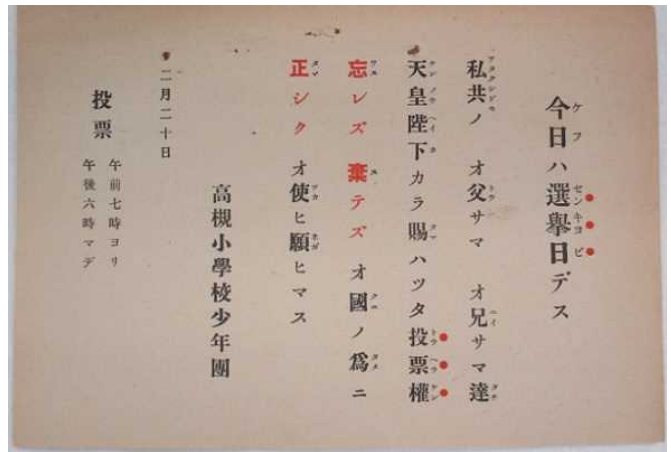 今日ハ選擧日デス
私共ノ オ父サマ オ兄サマ達
天皇陛下カラ賜ハツタ投票權
忘レズ 棄テズ オ國ノ爲ニ
正シク オ使ヒ願ヒマス
高槻小學校少年團
二月二十日
投票 午前七時ヨリ
午後六時マデ